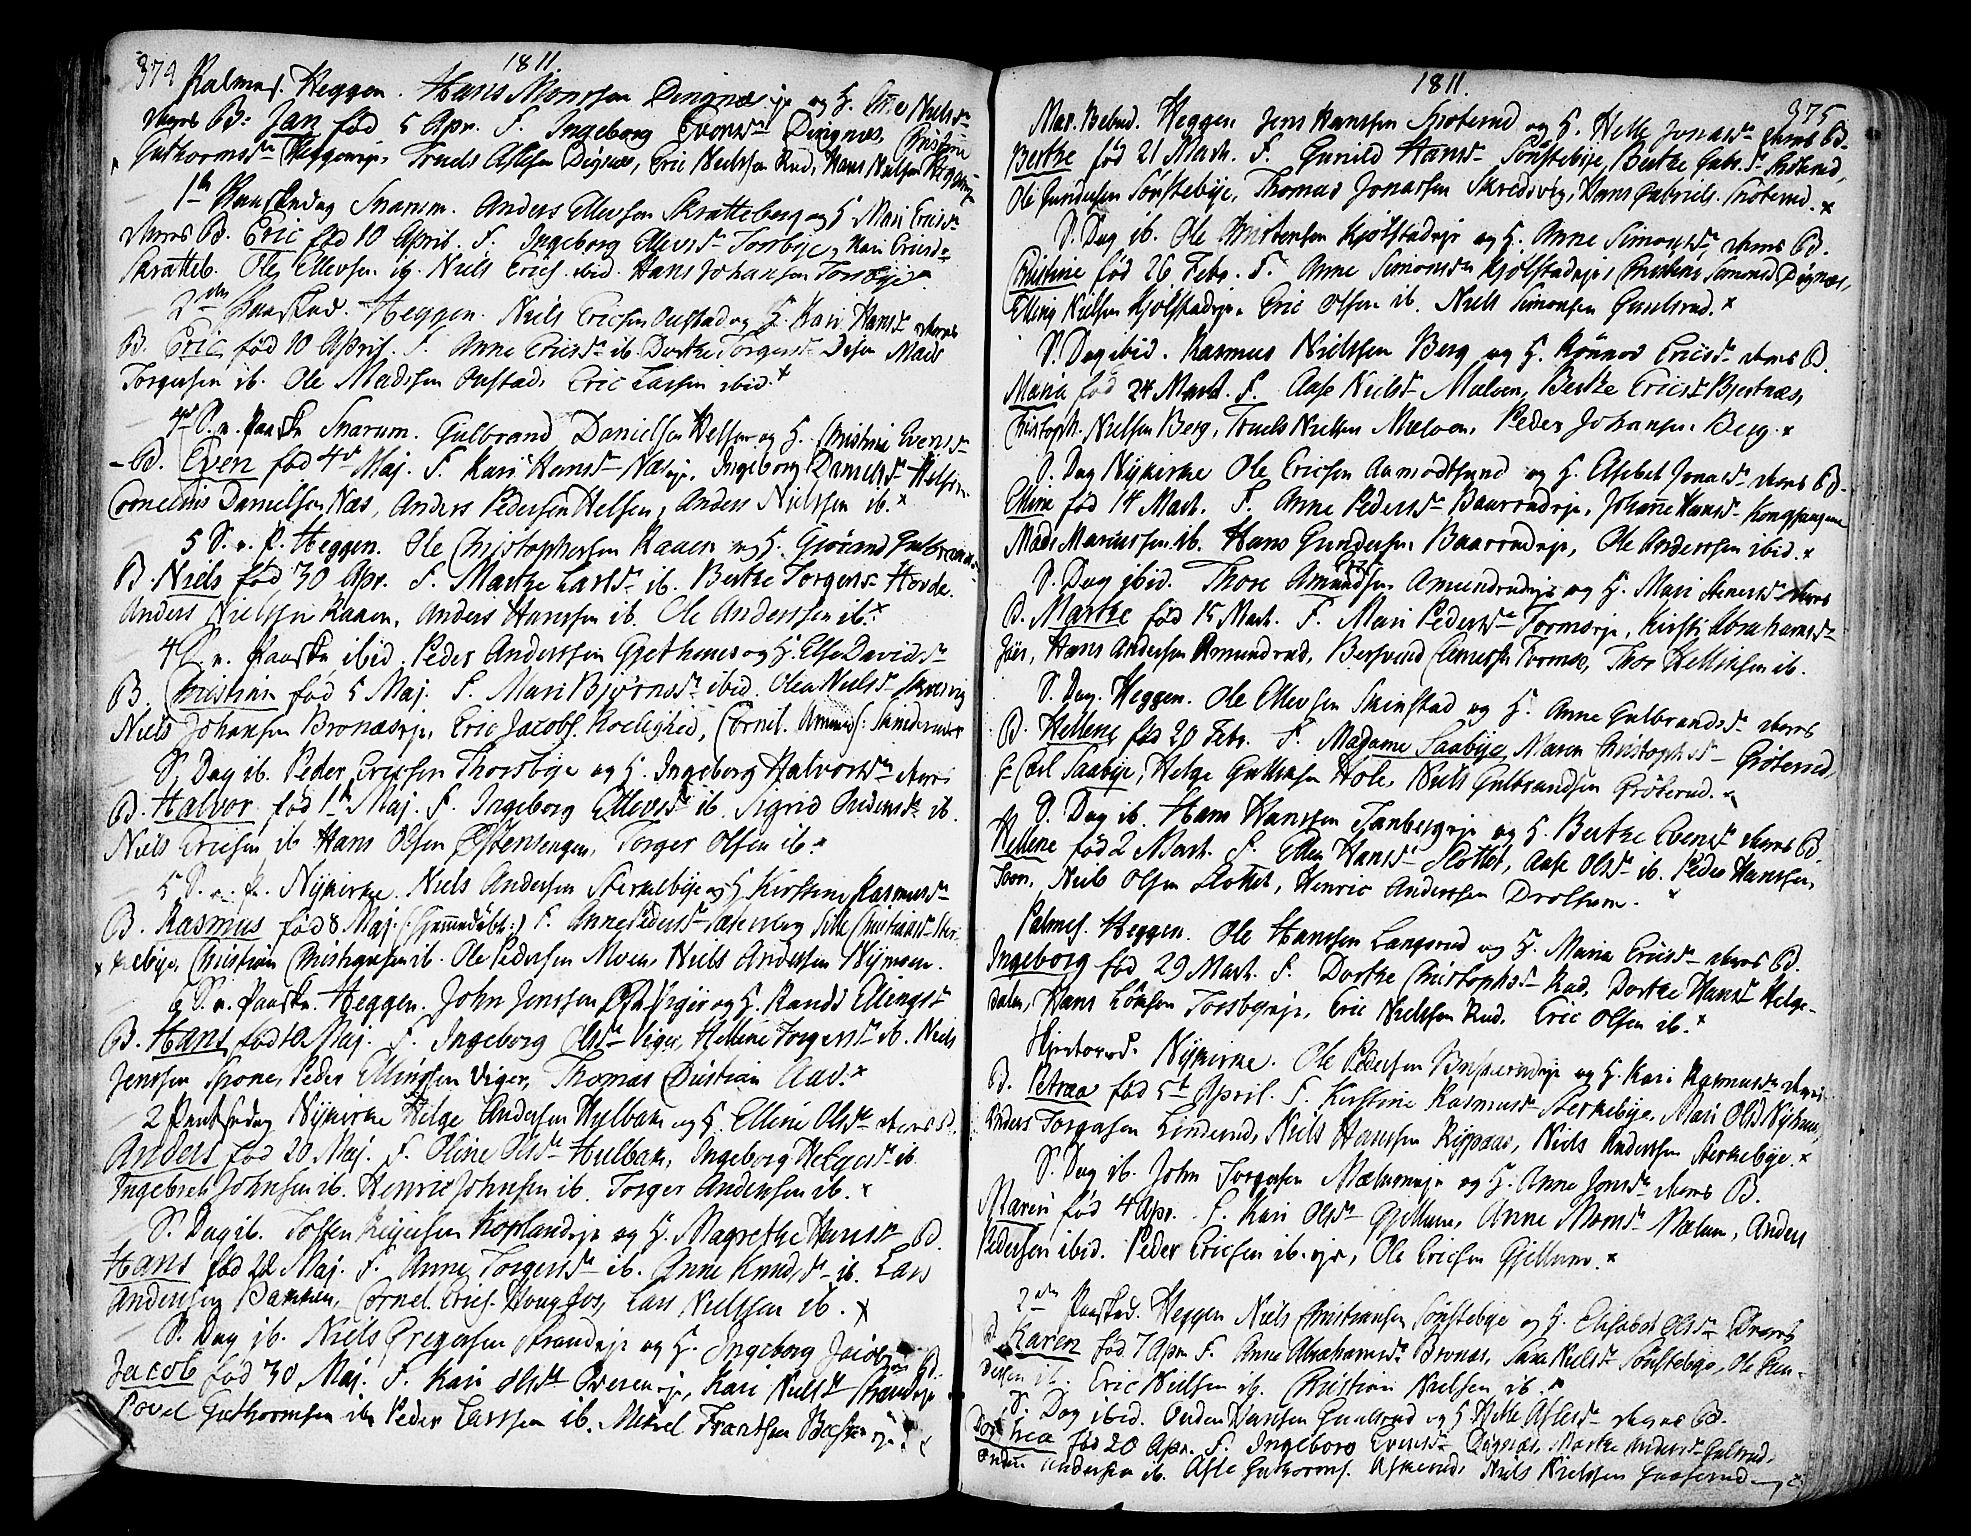 374
1811.
Palmes. Heggen. Hans Monssen Digræseje og H. Ane Nielsdr
deres B. Jan fød 5 Apr. F. Ingeborg Digræs, Christine
Guthormsdr Heggeneje, Truels Asles. Digræs, Eric Nielssen Rud, Hans Nielsen Heggen
1te Paaskedag Snarum. Anders Ellevsen Skratteberg og H. Mari Ericsdr
deres B. Eric fød 10 April. F. Ingeborg Ellevsdr Torsbye, Kari Ericsdr
Skratteb. Ole Ellevsen ib. Niels Erics. ibid. Hans Johansen Torsbye.
2den Paasked. Heggen. Niels Ericsen Oustad og H. Kari Hansdr deres
B. Eric fød 10 April. F. Anne Ericsdr ib. Dorthe Torgersdr Mads
Torgersen ib. Ole Madssen Oustad, Eric Larsen ibid. x
4de S. e. Paaske Snarum. Gulbrand Danielsen Helsen og H. Christine Evensdr
B. Even fød 4de Maj. F. Kari Hansdr Næseje, Ingeborg Danielsdr Helsen
Cornelius Danielsen Næs, Anders Pedersen Helsen, Anders Nielssen ib. x
5 S. e. P. Heggen. Ole Christophersen Raaen og H. Gjørand Gulbrands-
B. Niels fød 30 Apr. F. Marthe Larsdr ib. Berthe Torgersdr Hovde.
Anders Nielssen Raaen, Anders Hanssen ib. Ole Anderssen ib. x
4 S. e. Paaske ibid. Peder Anderssen Gjethuus og H. Else Davidsdr
B. Christian fød 5 Maj. F. Mari Bjørnsdr ibid. Olea Nielsdr
Niels Johansen Bronæseje, Eric Jacobs. Roelighed, Cornel. Amunds.
S. Dag ib. Peder Ericsen Thorsbye og H. Ingeborg Halvorsdr deres
B. Halvor fød 1te Maj. F. Ingeborg Ellevsdr ib. Sigrid ib.
Niels Ericsen ib. Hans Olsen Østensengen, Torger Olsen ib. x
5 S. e. P. Nykirke. Niels Andersen Sterkebye og H. Kirstine Rasmusdr
B. Rasmus fød 8 Maj. (hjemmedøbt) F. Anne Pedersdr Sille Christiansdr Ster-
kebye, Christian Christiansen ib. Ole Pedersen Moen, Niels Andersen Nymoen.
6 S. e. Paaske. Heggen. John Jenssen Viger og H. Randi Ellingsdr
B. Hans fød 12 Maj. F. Ingeborg Olsdr Viger, Hellene Torgersdr ib. Niels
Jenssen Spone, Peder Ellingsen Viger, Thomas Christian Aas. x
2 Pintsedag Nykirke Helge Andersen Hulbak og H. Elline Olsdr deres B.
Anders fød 20 Maj. F. Oline Olsdr Hulbak, Ingeborg Helgesdr ib.
Ingebreth Johnsen ib. Henric Johnsen ib. Torger Andersen ib. x
S. Dag ib. Tosten Koplandeje og H. Magrethe Hansdr B.
Hans fød 22 Maj. F. Anne Torgersdr ib. Anne Knudsdr ib. Lars
Andersen Bakken, Cornel. Erics. Hougfos, Lars Nielssen ib. x
S. Dag ib. Niels Gregersen Strandeje og H. Ingeborg Jacobsdr B.
Jacob fød 30 Maj. F. Kari Olsdr Overeneje, Kari Nielsdr Strandeje
Povel Guthormsen ib. Peder Larssen ib. Mikkel Frantsen
1811.
375
Mar. Bebud. Heggen Jens Hanssen Grøterud og H. Helle Jonasdr deres B.
Berthe fød 21 Mart. F. Gunild Hansdr Sønstebye, Berthe Gabr.dr Grøterud,
Ole Gundersen Sønstebye, Thomas Jonassen Skredsvig, Hans Gabriels. Grøterud. x
S. Dag ib. Ole Christensen Kjølstadeje og H. Anne Simonsdr deres B.
Christine fød 26 Febr. F. Anne Simonsdr Kjølstadeje, Christine Simonsd. Digræs,
Elling Nielsen Kjølstadeje, Eric Olsen ib. Niels Simonsen Gunelsrud. x
S. Dag ibid. Rasmus Nielssen Berg og H. Rønnov Ericsdr deres B.
Maria fød 24 Mart. F. Aase Nielsdr Mælum, Berthe Ericsdr Bjertnæs,
Christoph. Nielsen Berg, Truels Nielsen Mælum, Peder Johansen Berg. x
S. Dag Nykirke Ole Ericsen Aamodtsund og H. Elsebet Jonasdr deres B.
Elline fød 14 Mart. F. Anne Pedersdr Baarrudeje, Johanne Hansdr Kongssangene
Mads Mariussen ib. Hans Gundersen Baarrudeje, Ole Anderssen ibid. x
S. Dag ibid. Thore Amundsen Amundrudeje og H. Mari Steenersdr deres
B. Marthe fød 15 Mart. F. Mari Pedersdr Formoeje, Kirsti Abrahamsdr
Hans Andersen Amundrud, Bersvend Clemetsen Formoe, Thor Hellinsen ib.
S. Dag. Heggen. Ole Ellevsen Skinstad og H. Anne Gulbrandsdr deres
B. Hellene fød 20 Febr. F. Madame Saabye, Maren Christophsdr Grøterud,
Hr Carl Saabye, Helge Gulliksen Hole, Niels Gulbrandsen Grøterud. x
S. Dag ib. Hans Hanssen Tanbergeje og H. Berthe Evensdr deres B.
Hellene fød 2 Mart. F. Ellen Hansdr Slottet, Aase Olsdr ib. Peder Hanssen
Toon, Niels Olsen Slottet, Henric Anderssen Drolsum. x
Palmes. Heggen. Ole Hanssen Langerud og H. Maria Ericsdr deres B.
Ingeborg fød 29 Mart. F. Dorthe Christophsdr Rud, Dorthe Hansdr Helge-
dalen, Hans Torsbyeeje, Eric Nielssen Rud. Eric Olsen ib. x
Skjertorsd. Nykirke. Ole Pedersen Buskerudeje og H. Kari Rasmusdr deres
B. Petrea fød 5te April. F. Kirstine Rasmusdr Sterkebye, Mari Olsdr Nyhuus,
Anders Torgersen Linderud, Niels Hanssen Rypaas, Niels Anderssen Sterkebye. x
S. Dag ib. John Torgersen Mælumeje og H. Anne Jonsdr deres B.
Maren fød 4 Apr. F. Kari Olsdr Gjellum, Anne Monsdr Mælum, Anders
Pedersen ibid. Peder Ericsen ib. eje, Ole Ericsen Gjellum. x
2den Paasked. Heggen Niels Christiansen Sønstebye og H. Elisabet Olsdr deres
B. Karen fød 7 Apr. F. Anne Abrahamsdr Bronæs, Sara Nielsdr Sønstebye, Ole Gun-
dersen ib. Eric Nielsen ib. Christian Nielsen ib. x
S. Dag ibid. Ouden Hansen Gunelsrud og H. Helle Aslesdr deres B.
Dorthea fød 20 Apr. F. Ingeborg Evensdr Digræs, Marthe Andersdr Gulsrud,
Andersen ib. Asle Guthorms. Askerud, Niels Nielssen